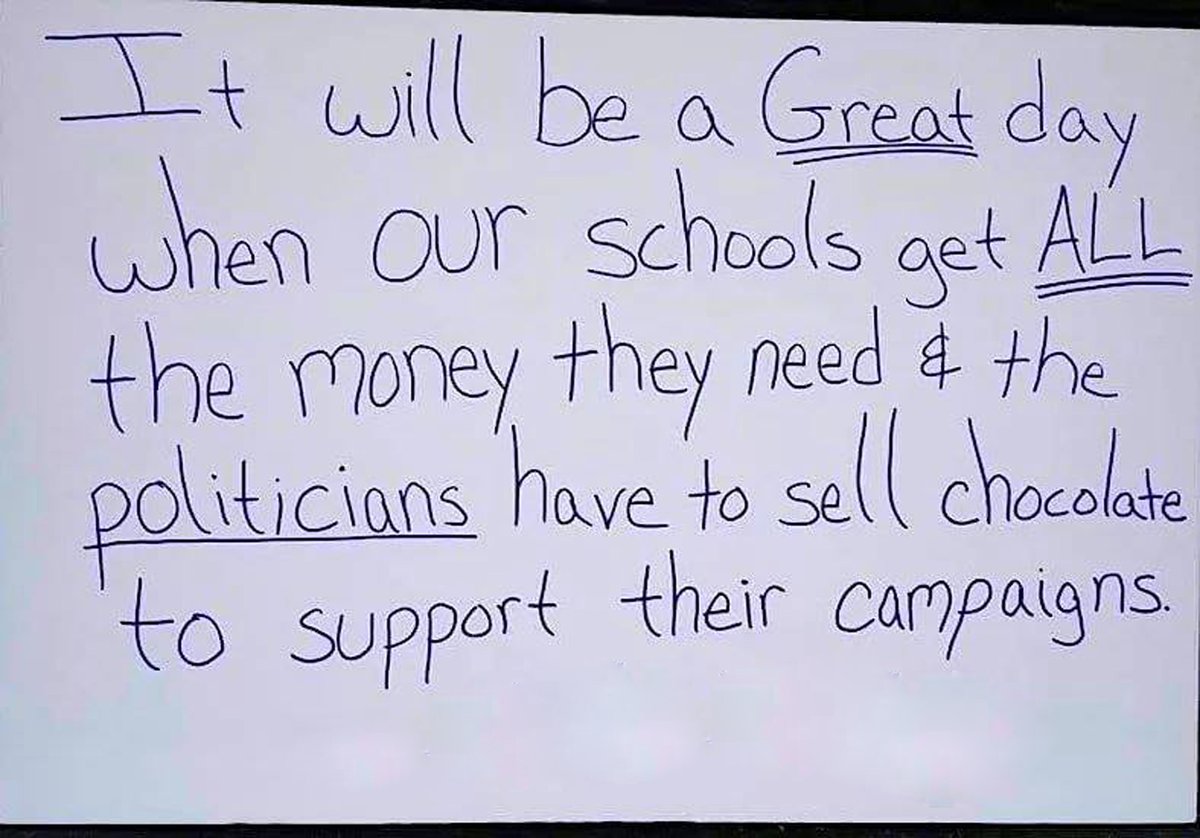 It will be a Great day
when our schools get ALL
the money they need & the
politicians have to sell chocolate
to support their campaigns.